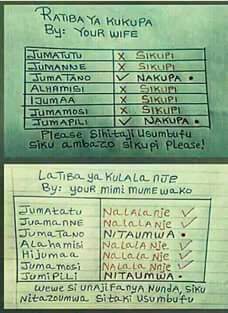 RATIBA YA KUKUPA
By: YOUR WIFE
JUMATUTU X SIKUPI
JUMANNE X SIKUPI
JUMATANO ✓ NAKUPA •
ALHAMISI X SIKUPI
IJUMAA X SIKUPI
JUMAMOSI X SIKUPI
JUMAPILI ✓ NAKUPA •
Please Sihitaji usumbufu
siku ambazo sikupi Please!
LATIBA YA KULALA NJE
By: YOUR MIMI MUMEWAKO
Jumatatu NaLaLa Nje ✓
Juamanne NaLaLa Nje ✓
JumaTano NITAUMWA •
Alahamisi NaLaLa Nje ✓
Hijumaa NaLaLa Nje ✓
Jumamosi NaLaLa Nje ✓
JumiPiLi NITAUMWA •
wewe si unajifanya Nunda, siku
Nitazoumwa sitaki usumbufu